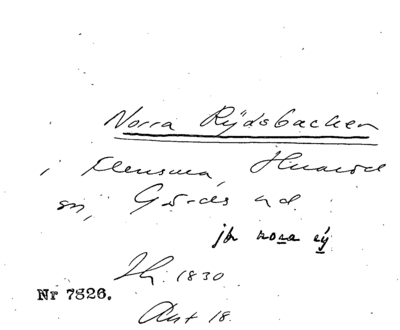 Norra Rydsbacken
i Flensma, Hwarod
sn, Gärds hd.
jfr nora rÿ
Jb. 1830
Nr 7826.
Akt 18.